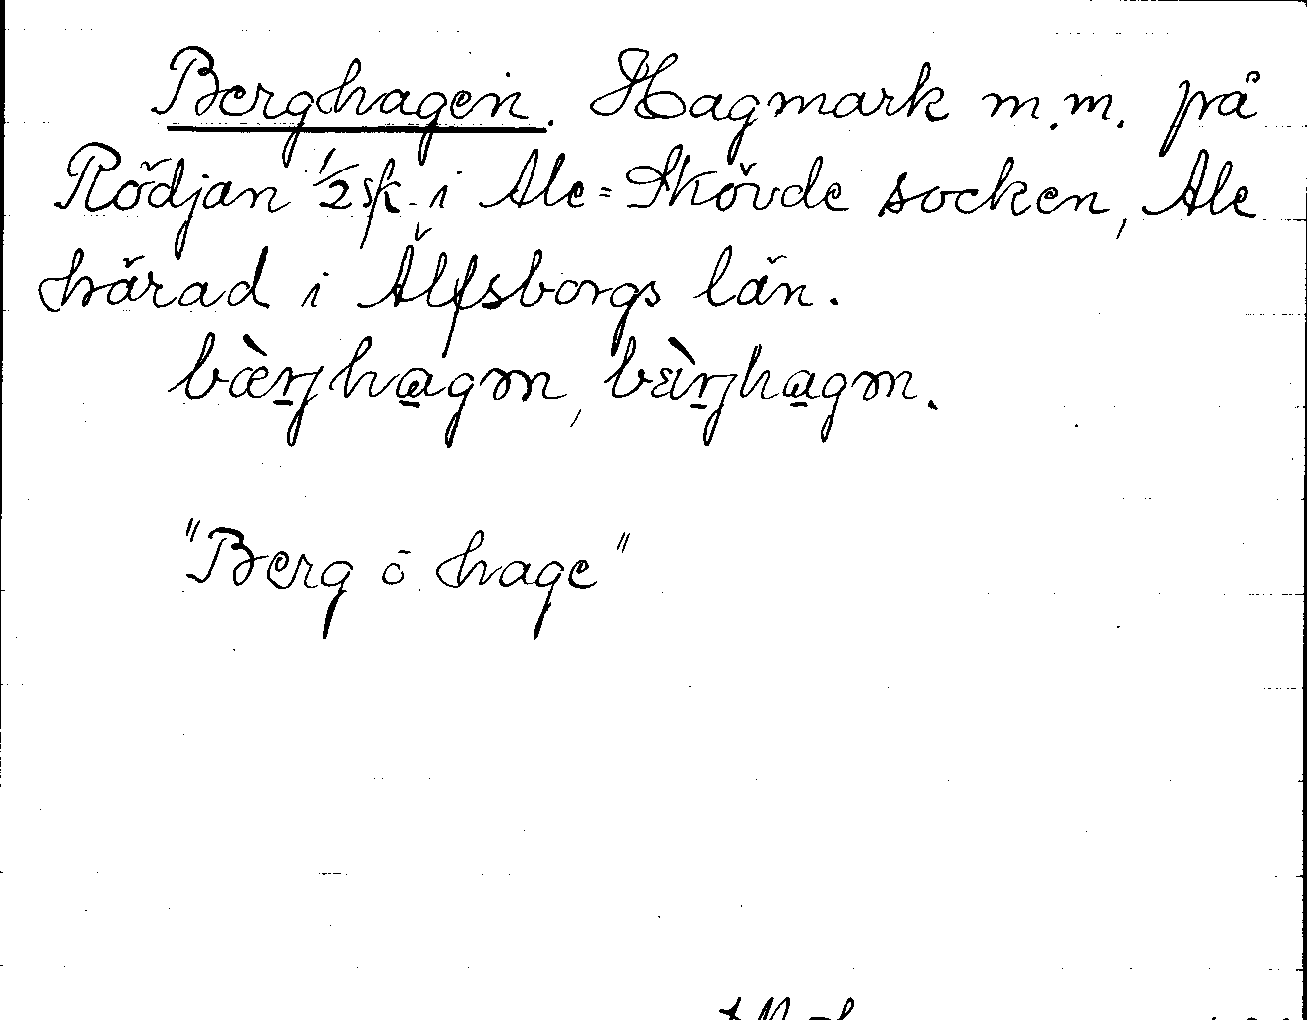 Berghagen. Hagmark m.m. på
Rödjan ½ sk. i Ale-Skövde socken, Ale
härad i Älfsborgs län.
bæ̀rjhagm, bɛ̀rjhagm.
"Berg ō hage"